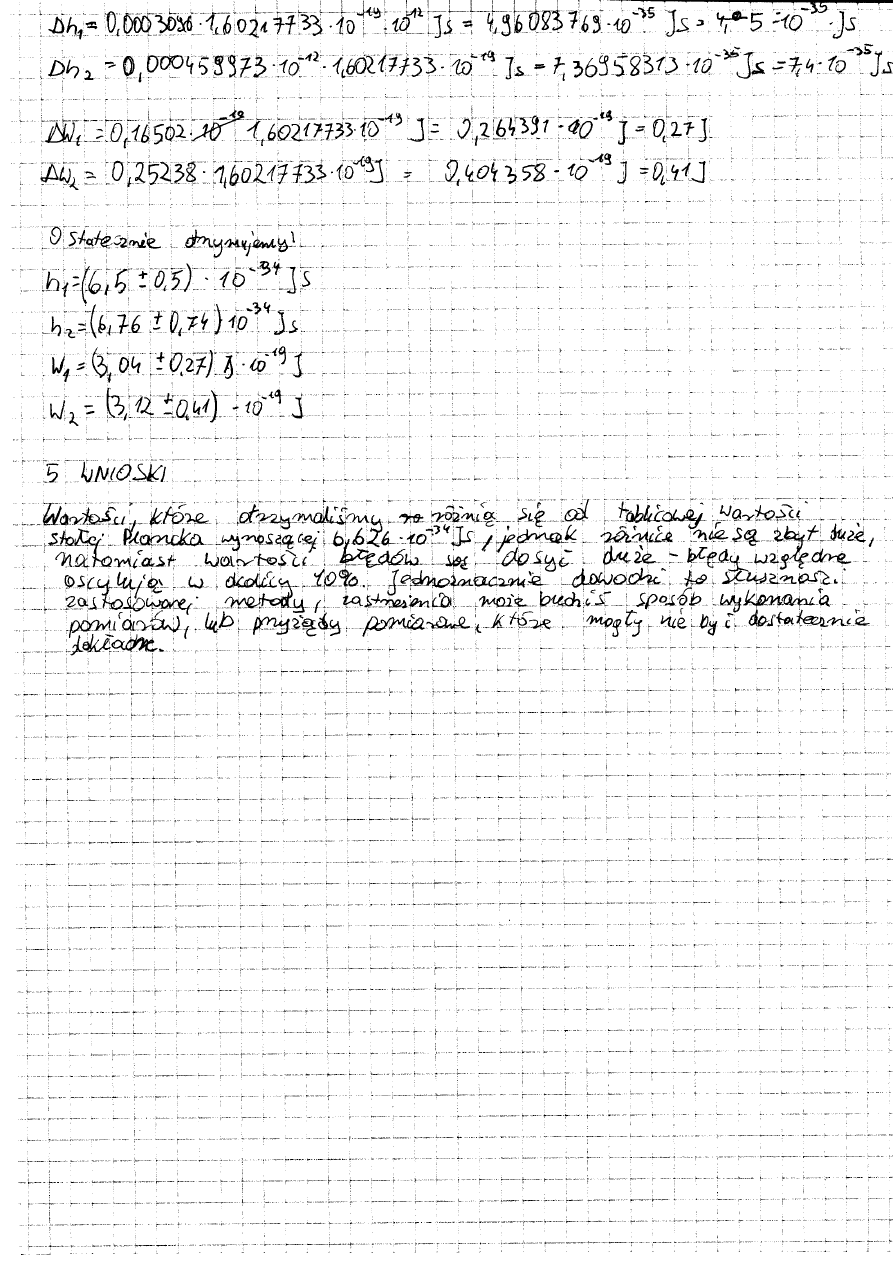 Δh₁ = 0,0003096 · 1,60217733 · 10⁻¹⁹ · 10⁻¹² Js = 4,96083769 · 10⁻³⁵ Js = 5 · 10⁻³⁵ · Js
Δh₂ = 0,000459973 · 10⁻¹² · 1,60217733 · 10⁻¹⁹ Js = 7,36958313 · 10⁻³⁵ Js = 7,4 · 10⁻³⁵ Js
ΔW₁ = 0,16502 · 1,60217733 · 10⁻¹⁹ J = 0,264391 · 10⁻¹⁹ J = 0,27 J
ΔW₂ = 0,25238 · 1,60217733 · 10⁻¹⁹ J = 0,404358 · 10⁻¹⁹ J = 0,41 J
Ostatecznie otrzymujemy:
h₁ = (6,5 ± 0,5) · 10⁻³⁴ Js
h₂ = (6,76 ± 0,74) 10⁻³⁴ Js
W₁ = (3,04 ± 0,27) · 10⁻¹⁹ J
W₂ = (3,12 ± 0,41) · 10⁻¹⁹ J
5 WNIOSKI
Wartości, które otrzymaliśmy różnią się od tablicowej wartości
stałej Plancka wynoszącej 6,626 · 10⁻³⁴ Js, jednak różnice nie są zbyt duże,
natomiast wartości błędów są dosyć duże – błędy względne
oscylują w okolicy 10%. Jednoznacznie dowodzi to słuszność
zastosowanej metody, zastrzeżenia może budzić sposób wykonania
pomiarów, lub przyrządy pomiarowe, które mogły nie być dostatecznie
dokładne.